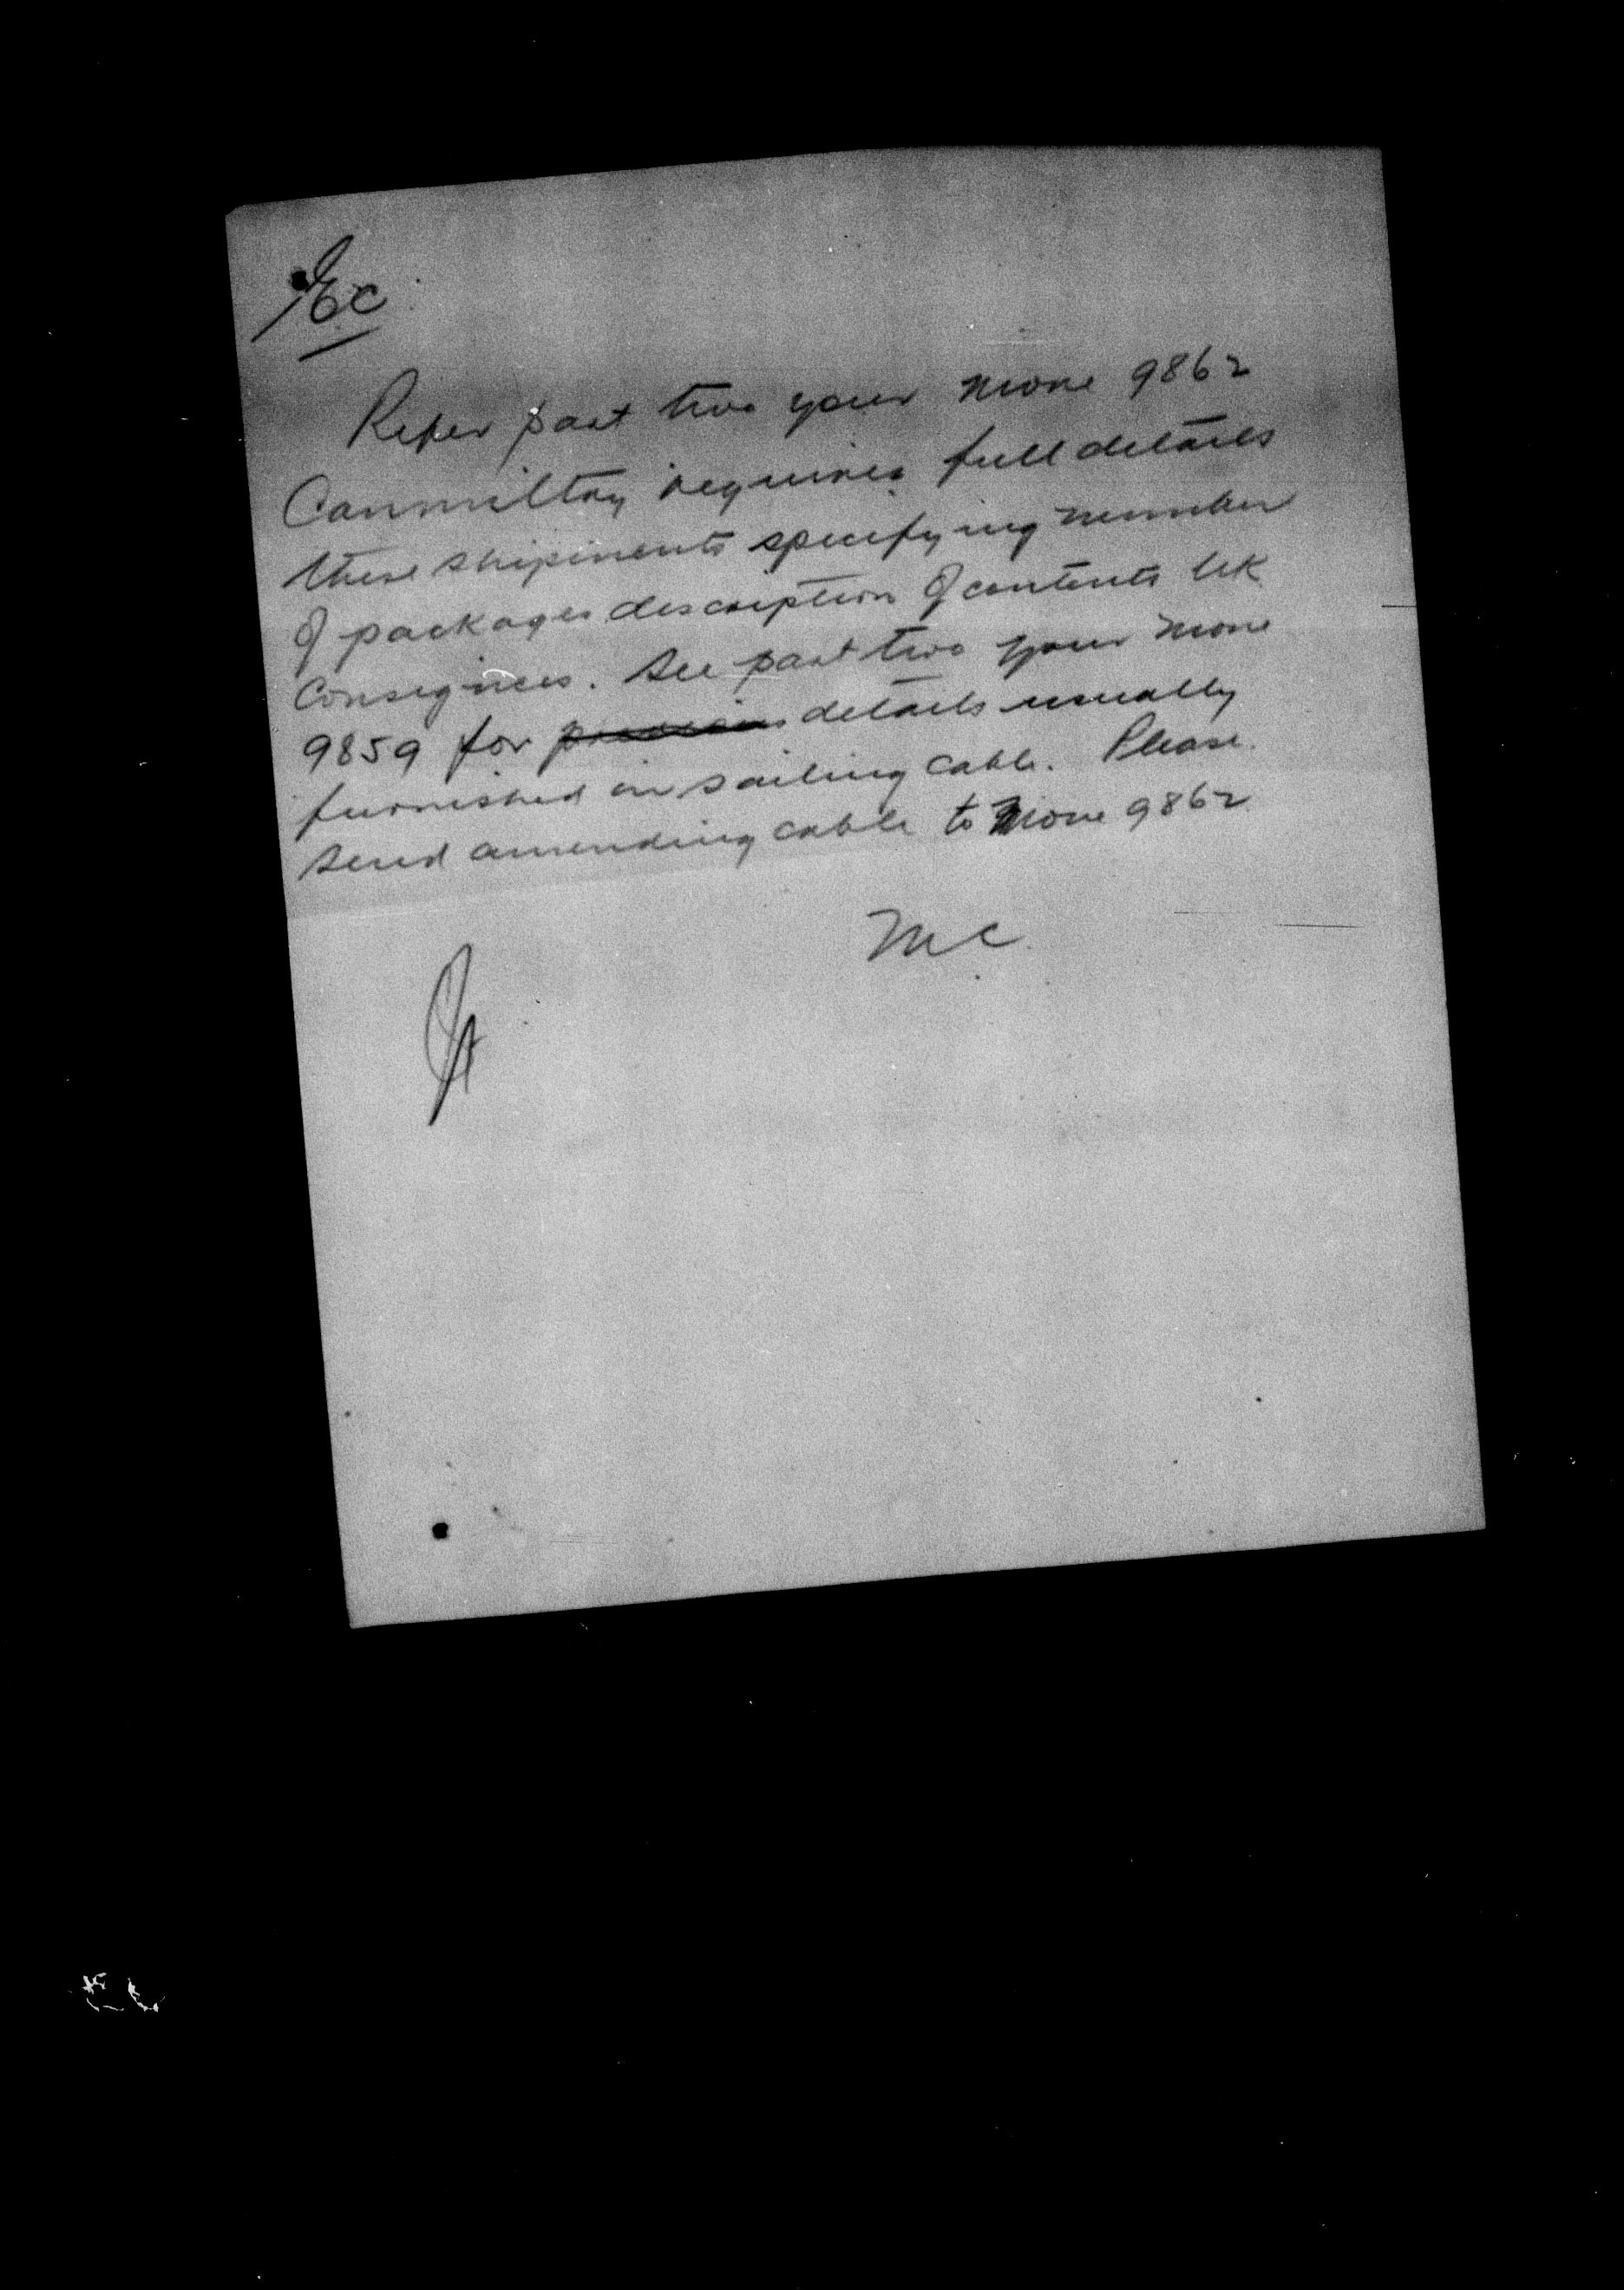 EC
Refer part two your Move 9862
Canmiltry requires full details
these shipments specifying number
of packages description of contents UK
consignees. See part two your Move
9859 for details usually
furnished in sailing cable. Please
send amending cable to Move 9862
MC